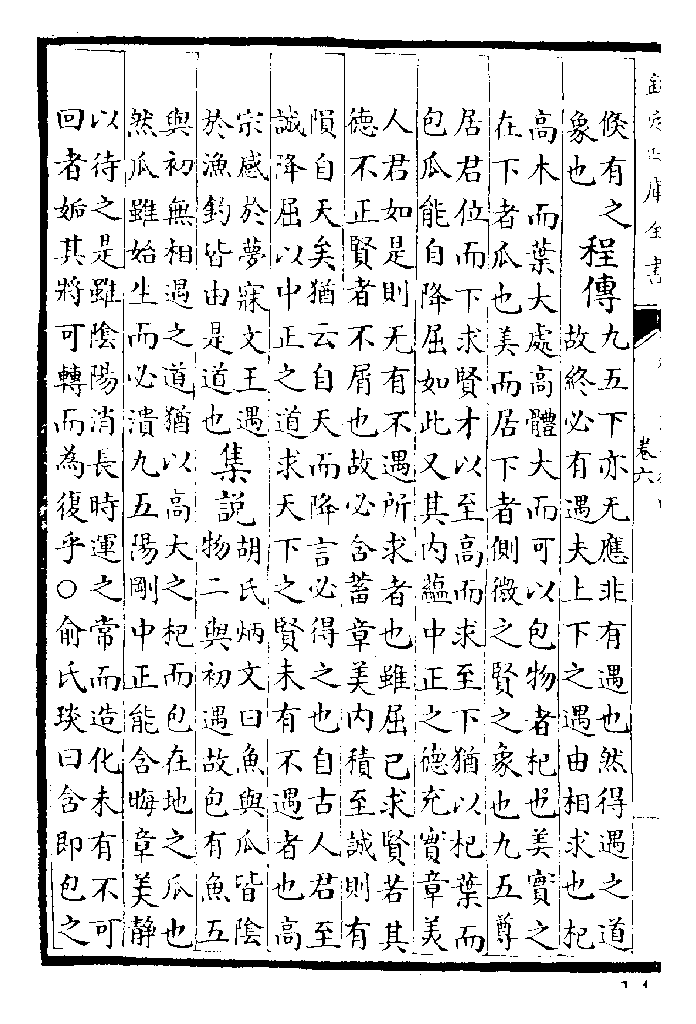 欽定四庫全書
卷六
倏有之
象也
程傳
九五下亦无應非有遇也然得遇之道
故終必有遇夫上下之遇由相求也杞
高木而葉大處高體大而可以包物者杞也美實之
在下者瓜也美而居下者側微之賢之象也九五尊
居君位而下求賢才以至高而求至下猶以杞葉而
包瓜能自降屈如此又其内蘊中正之德充實章美
人君如是則无有不遇所求者也雖屈己求賢若其
德不正賢者不屑也故必含蓄章美内積至誠則有
隕自天矣猶云自天而降言必得之也自古人君至
誠降屈以中正之道求天下之賢未有不遇者也高
宗感於夢寐文王遇
於漁釣皆由是道也
集説
胡氏炳文曰魚與瓜皆陰
物二與初遇故包有魚五
與初無相遇之道猶以高大之杞而包在地之瓜也
然瓜雖始生而必潰九五陽剛中正能含晦章美静
以待之是雖陰陽消長時運之常而造化未有不可
回者姤其將可轉而為復乎○俞氏琰曰含即包之